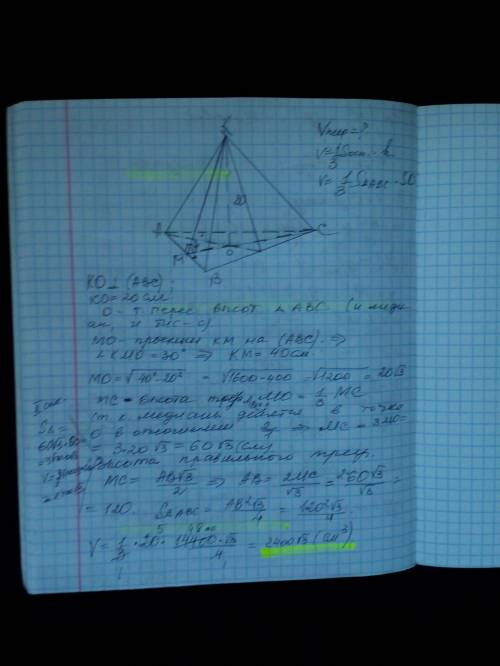 Vпир=?
V=1/3 Sосн · h
V = 1/3 SABC · SO
K
20
A
C
M
O
B
KO⊥(ABC)
KO=20см
O - т. перес высот △ ABC (и меди-
ан, и бис-с).
MO - проекция KM на (ABC) ⇒
∠KMO=30° ⇒ KM=40см
MO=√40²-20² = √1600-400 = √1200 = 20√3
MC - высота MO = 1/3 MC
(т. к. медианы делятся в точке
O в отношении ⇒ MC = 3MO=
= 3·20√3 = 60√3 (см)
Высота правильного треуг.
MC = AB√3/2 ⇒ AB = 2MC/√3 = 2·60√3/√3 =
= 120. SABC = AB²√3/4 = 120²√3/4
V = 1/3 · 20 · 14400·√3/4 = 2400√3 (см³)